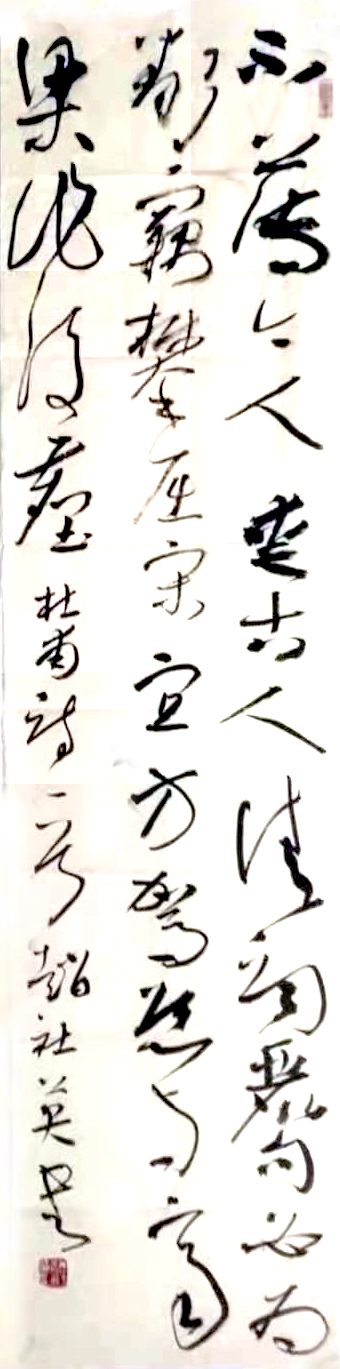 不薄今人爱古人清词丽句必为
邻窃攀屈宋宜方驾恐与齐
梁作后尘杜甫诗一首赵社英书